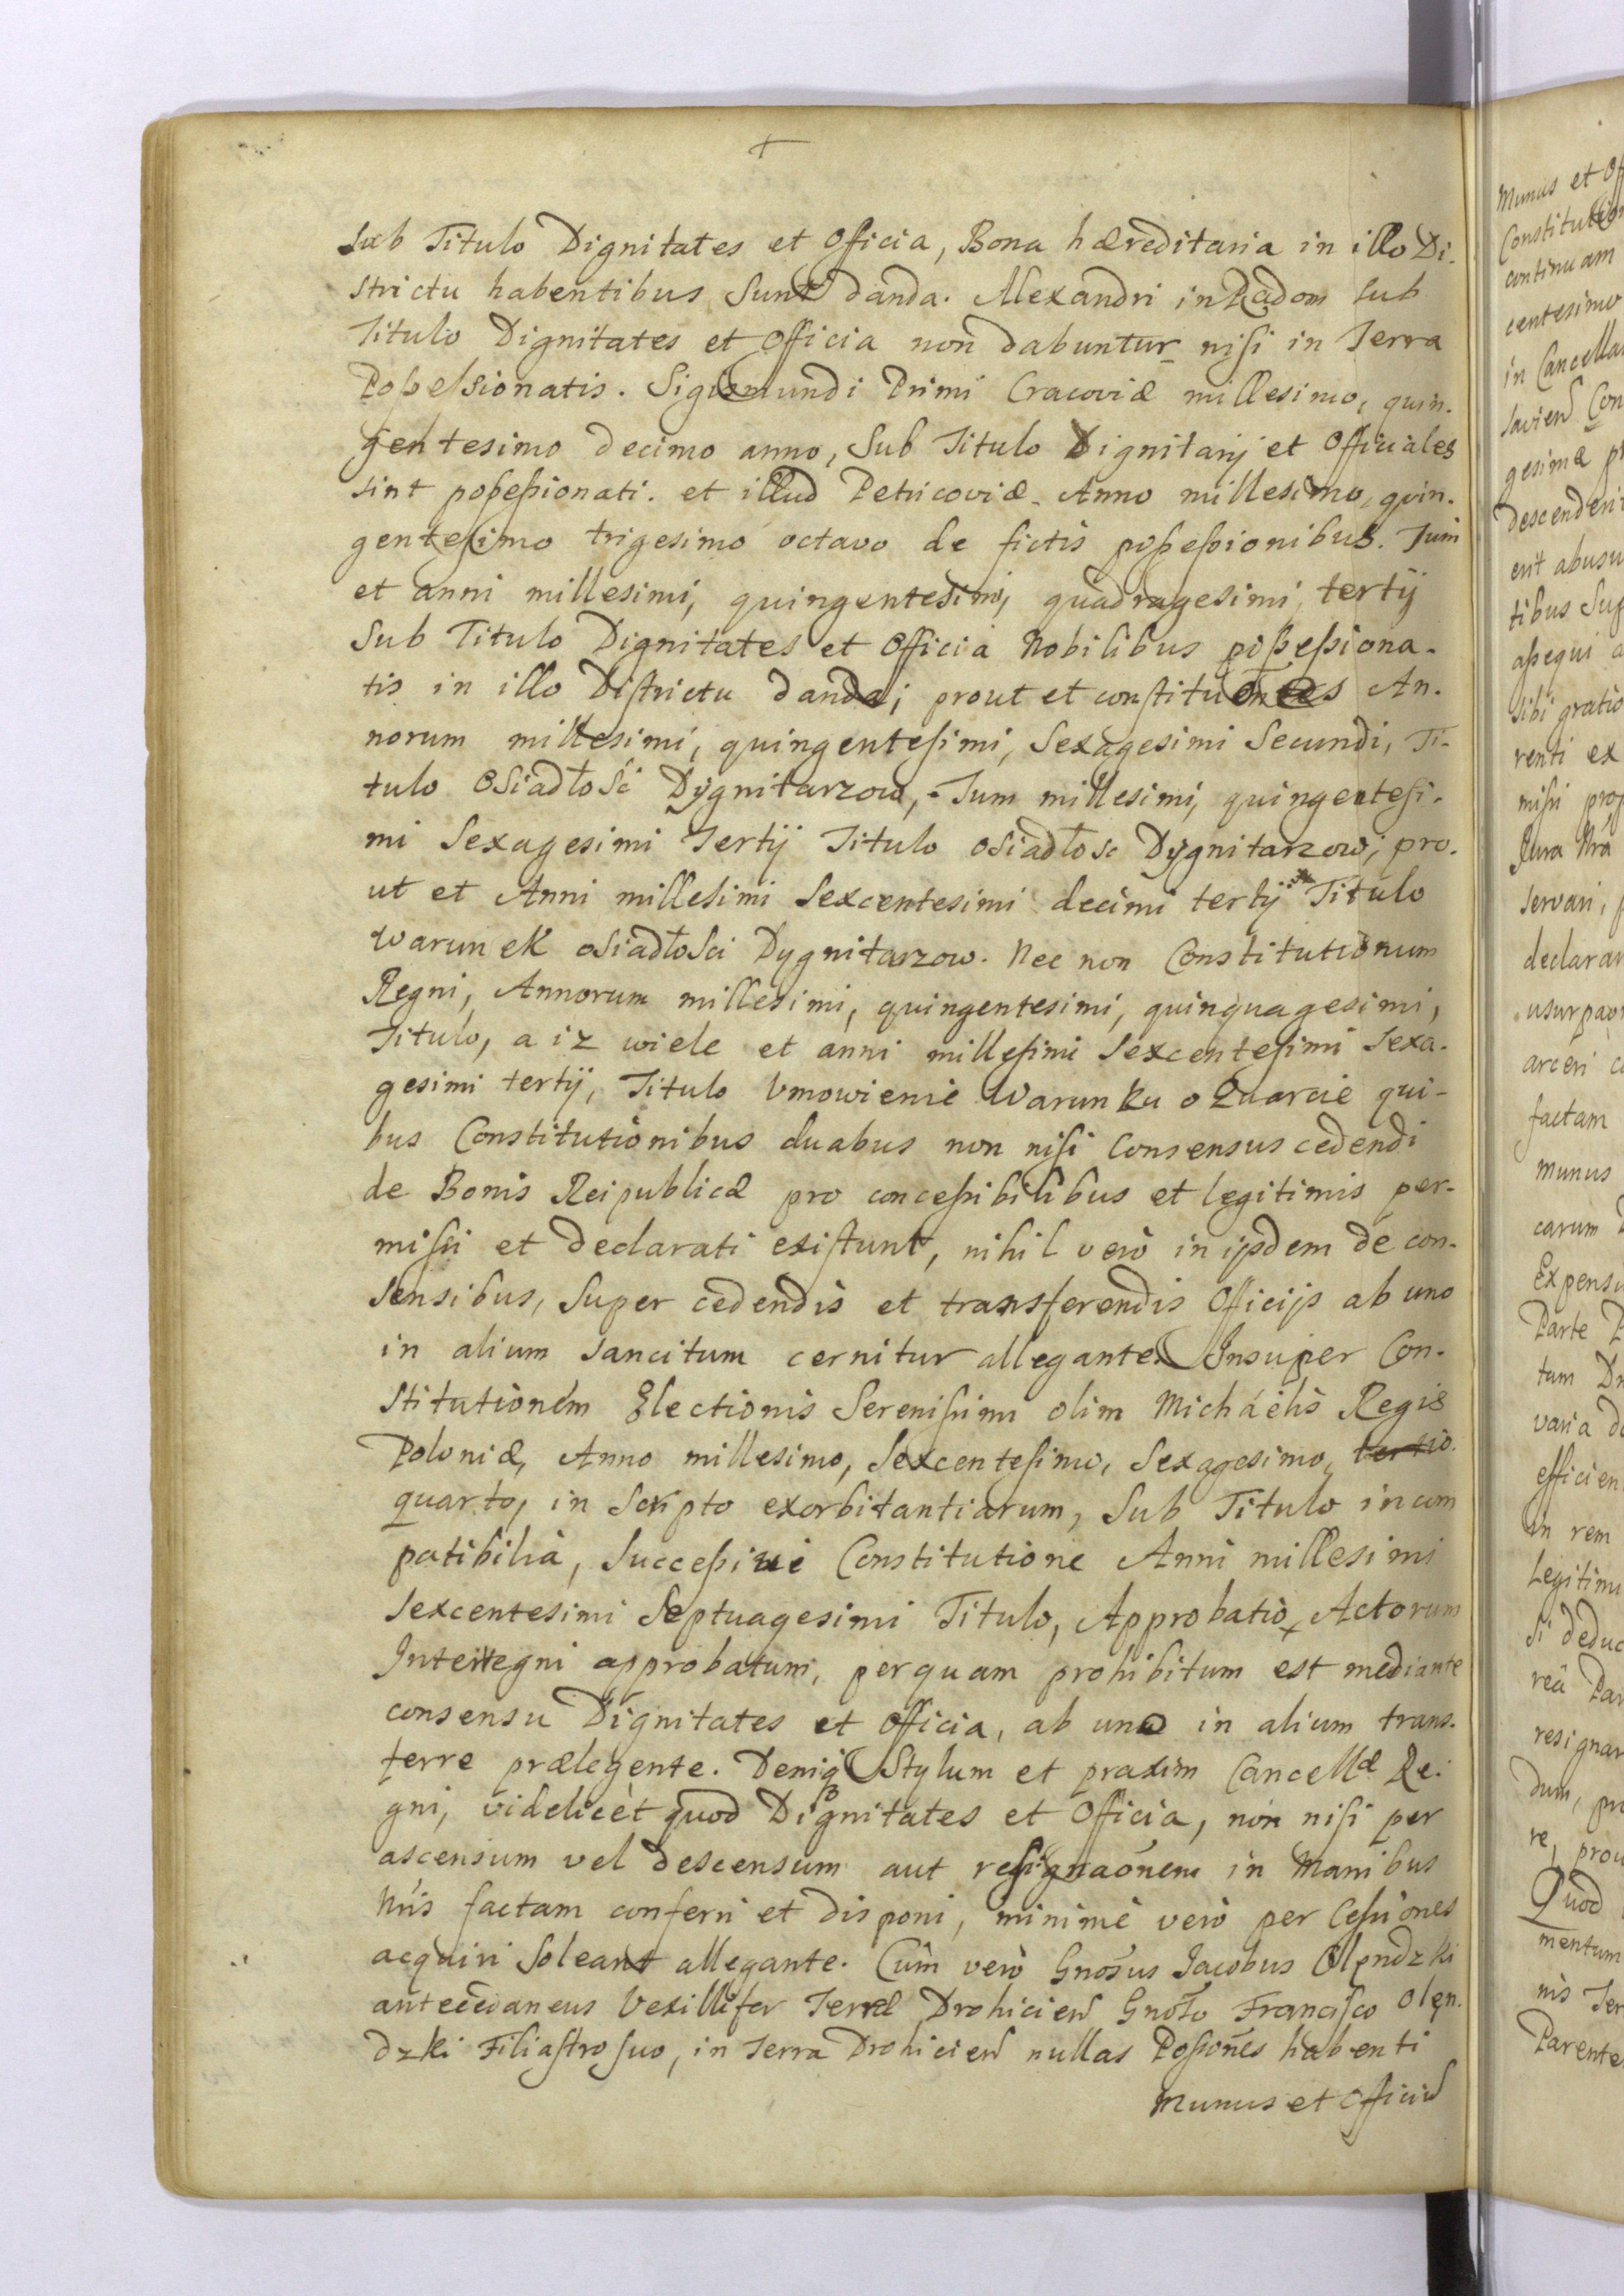 Sub Titulo Dignitates et Officia, Bona hæreditaria in illo Di-
strictu habentibus Sunt danda. Alexandri in Radom Sub
Titulo Dignitates et Officia non dabuntur nisi in Terra
Possessionatis. Sigismundi Primi Cracoviæ millesimo, quin-
gentesimo decimo anno, Sub Titulo Dignitarij et Officiales
sint possessionati. et illud Petricoviæ Anno millesimo, quin-
gentesimo trigesimo octavo de fictis possessionibus. Tum
et anni millesimi, quingentesimi, quadragesimi, tertij
Sub Titulo Dignitates et Officia Nobilibus possessiona-
tis in illo Districtu danda; prout et constitutiones An-
norum millesimi, quingentesimi, Sexagesimi Secundi, Ti-
tulo Osiadłości Dygnitarzow, Tum millesimi, quingentesi-
mi Sexagesimi Tertij Titulo osiadłosc Dygnitarzow, pro-
ut et Anni millesimi Sexcentesimi decimi tertij Titulo
Warunek osiadłosci Dygnitarzow. Nec non Constitutionum
Regni, Annorum millesimi, quingentesimi, quinquagesimi,
Titulo, a iz wiele et anni millesimi Sexcentesimi Sexa-
gesimi tertij, Titulo Vmowienie Warunku o Quarcie qui-
bus Constitutionibus duabus non nisi Consensus cedendi
de Bonis Reipublicæ pro concessibilibus et legitimis per-
missi et declarati existunt, nihil verò in ijsdem de con-
sensibus, Super cedendis et transferendis Officijs ab uno
in alium Sancitum cernitur allegante. Insuper Con-
stitutionem Electionis Serenissimi olim Michaëlis Regis
Poloniæ, Anno millesimo, Sexcentesimo, Sexagesimo, tertio
quarto, in Scripto exorbitantiarum, Sub Titulo incom
patibilia, Successivè Constitutione Anni millesimi
Sexcentesimi Septuagesimi Titulo, Approbatio Actorum
Interregni approbatum, per quam prohibitum est mediante
consensu Dignitates et Officia, ab uno in alium trans-
ferre prælegente. Deniq Stylum et praxim Cancellæ Re-
gni, videlicèt quod Dignitates et Officia, non nisi per
ascensum vel descensum aut resignaõnem in Manibus
Nris factam conferri et disponi, minimè verò per Cessiones
acquiri Soleant allegante. Cùm verò Gnosus Jacobus Olendzki
antecedaneus Vexillifer Terræ Drohicien Gnoso Francisco Olęn-
dzki Filiastro suo, in Terra Drohicien nullas Possiones habenti
Munus et Officiu
Munus et Of
Constitution
continuam
centesimo
in Cancella
Savien Con
gesimæ pr
descenderi
erit abusu
tibus Sup
assequi a
sibi gratio
renti ex
missi prop
Jura Nra
Servari, p
declarar
usurpaon
arceri co
factam
munus
carum
Expensu
Parte P
tam Dn
varia de
efficien
in rem
Legitimu
Si deduc
reâ Par
resignar
dum, pr
re, prou
Quod
mentum
nis Ter
Parente